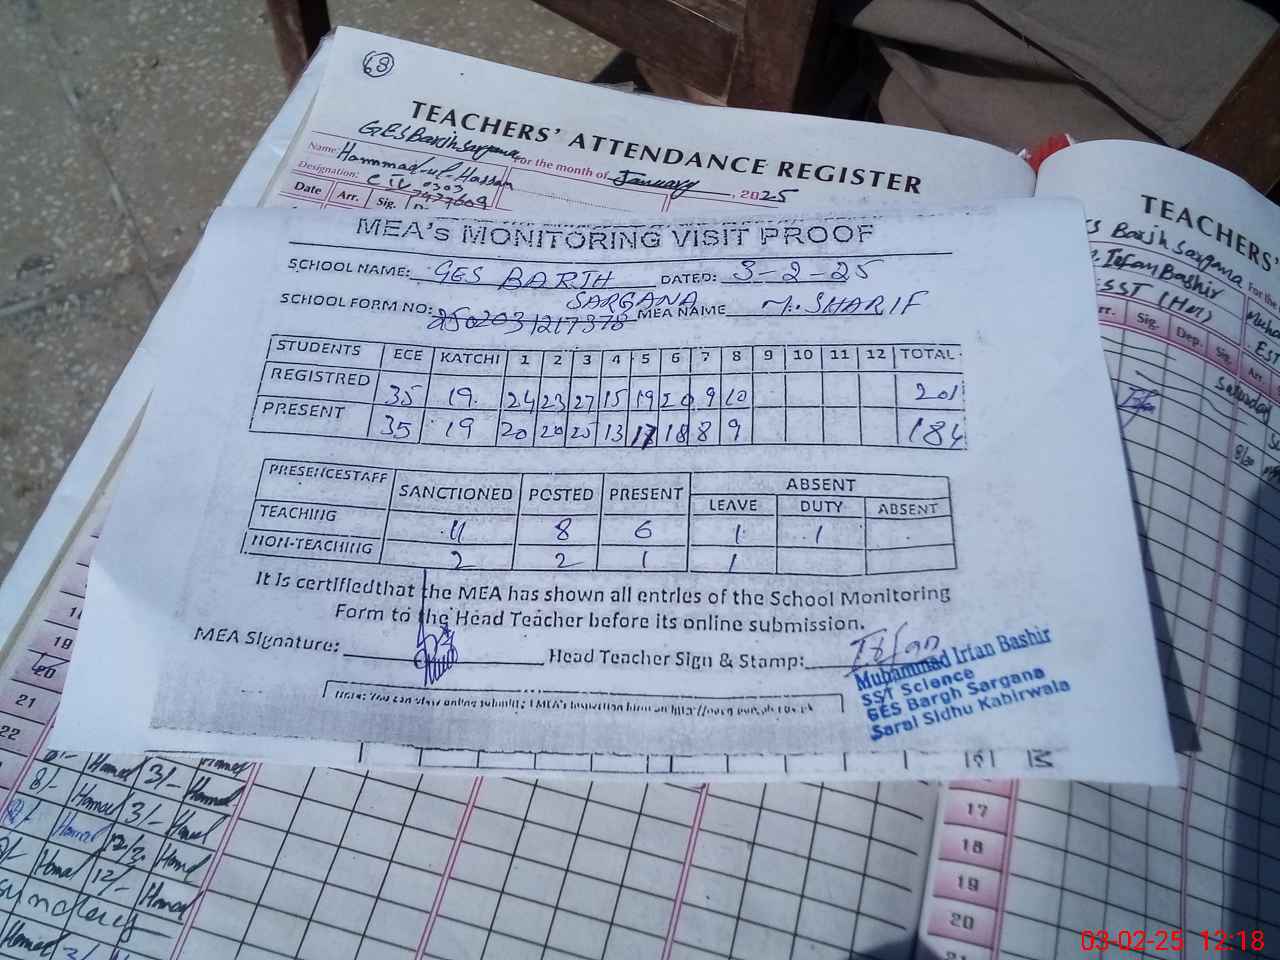 68
TEACHERS' ATTENDANCE REGISTER
GES Barjh Sargana
Name: Hammad-ul-Hassan For the month of January, 2025
Designation:
0303
Date Arr. Sig.
MEA's MONITORING VISIT PROOF
SCHOOL NAME: GES BARJH DATED: 3-2-25
SARGANA
SCHOOL FORM NO: 2502031217378 MEA NAME M. SHARIF
STUDENTS ECE KATCHI 1 2 3 4 5 6 7 8 9 10 11 12 TOTAL
REGISTRED 35 19 24 23 27 15 19 20 9 10 201
PRESENT 35 19 20 20 25 13 17 18 8 9 184
PRESENCESTAFF SANCTIONED POSTED PRESENT ABSENT
LEAVE DUTY ABSENT
TEACHING 11 8 6 1 1
NON-TEACHING 2 2 1 1
It is certifiedthat the MEA has shown all entries of the School Monitoring
Form to the Head Teacher before its online submission.
MEA Signature: Head Teacher Sign & Stamp: Irfan
Muhammad Irfan Bashir
SST Science
GES Bargh Sargana
Sarai Sidhu Kabirwala
TEACHERS'
Barjh Sargana For the
Irfan Bashir
SST (HM)
Arr. Sig. Dep. Sig. Arr
Saturday
19
20
21
22
8/- Hamad 3/- Hamad
17
18
19
20
03-02-25 12:18